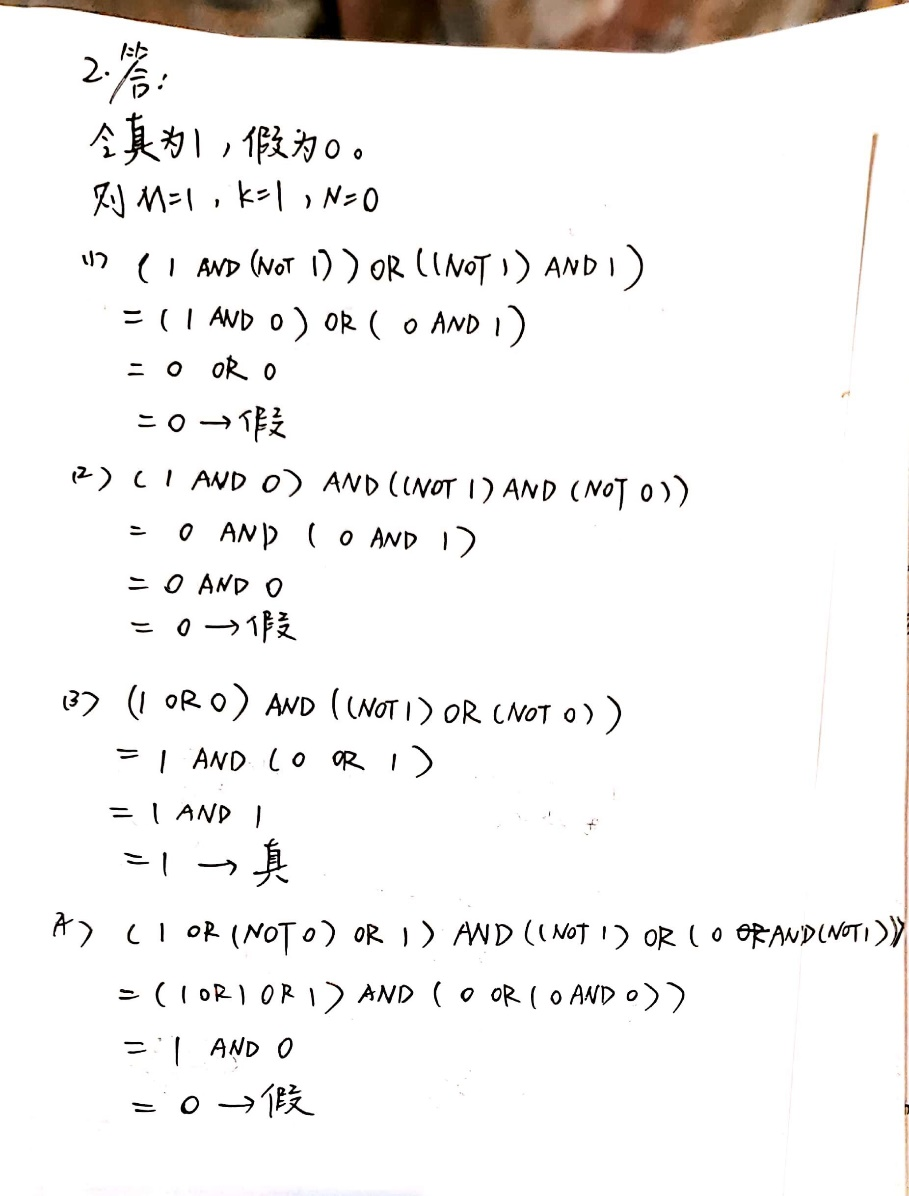 2.答:
令真为1，假为0。
则M=1，k=1，N=0
(1) (1 AND (NOT 1)) OR ((NOT 1) AND 1)
= (1 AND 0) OR ( 0 AND 1)
= 0 OR 0
= 0 → 假
(2) (1 AND 0) AND ((NOT 1) AND (NOT 0))
= 0 AND ( 0 AND 1)
= 0 AND 0
= 0 → 假
(3) (1 OR 0) AND ((NOT 1) OR (NOT 0))
= 1 AND (0 OR 1)
= 1 AND 1
= 1 → 真
(1 OR (NOT 0) OR 1) AND ((NOT 1) OR (0 AND (NOT 1)))
= (1 OR 1 OR 1) AND (0 OR (0 AND 0))
= 1 AND 0
= 0 → 假